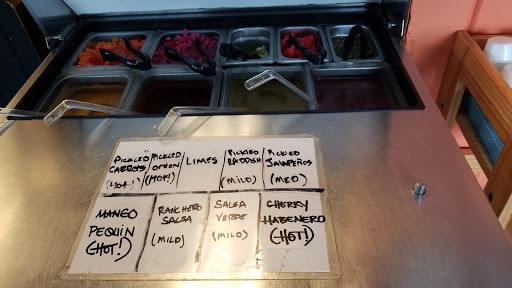 PICKLED CARROTS (HOT!)
PICKLED ONION (HOT!)
LIMES
PICKLED RADDISH (MILD)
PICKLED JALAPEÑOS (MED)
MANGO PEQUIN (HOT!)
RANCHERO SALSA (MILD)
SALSA VERDE (MILD)
CHERRY HABENERO (HOT!)